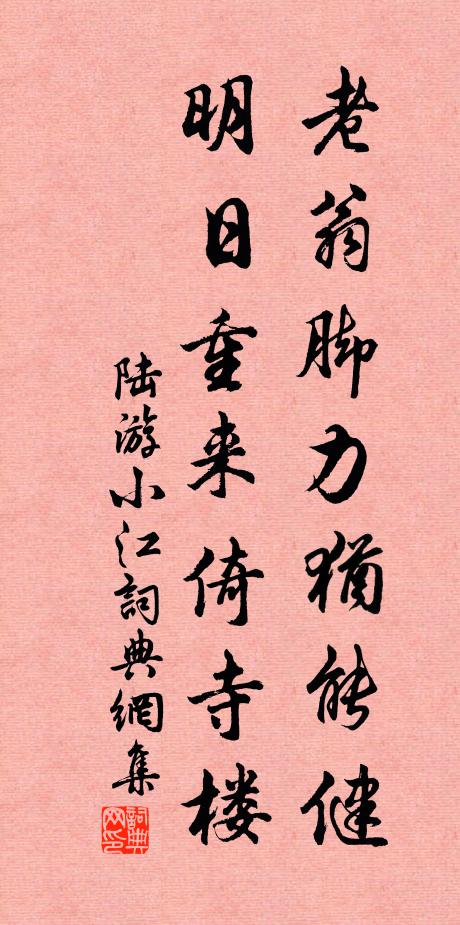 老翁脚力犹能健
明日重来倚寺楼
陆游小江詞典網集
詞典网印